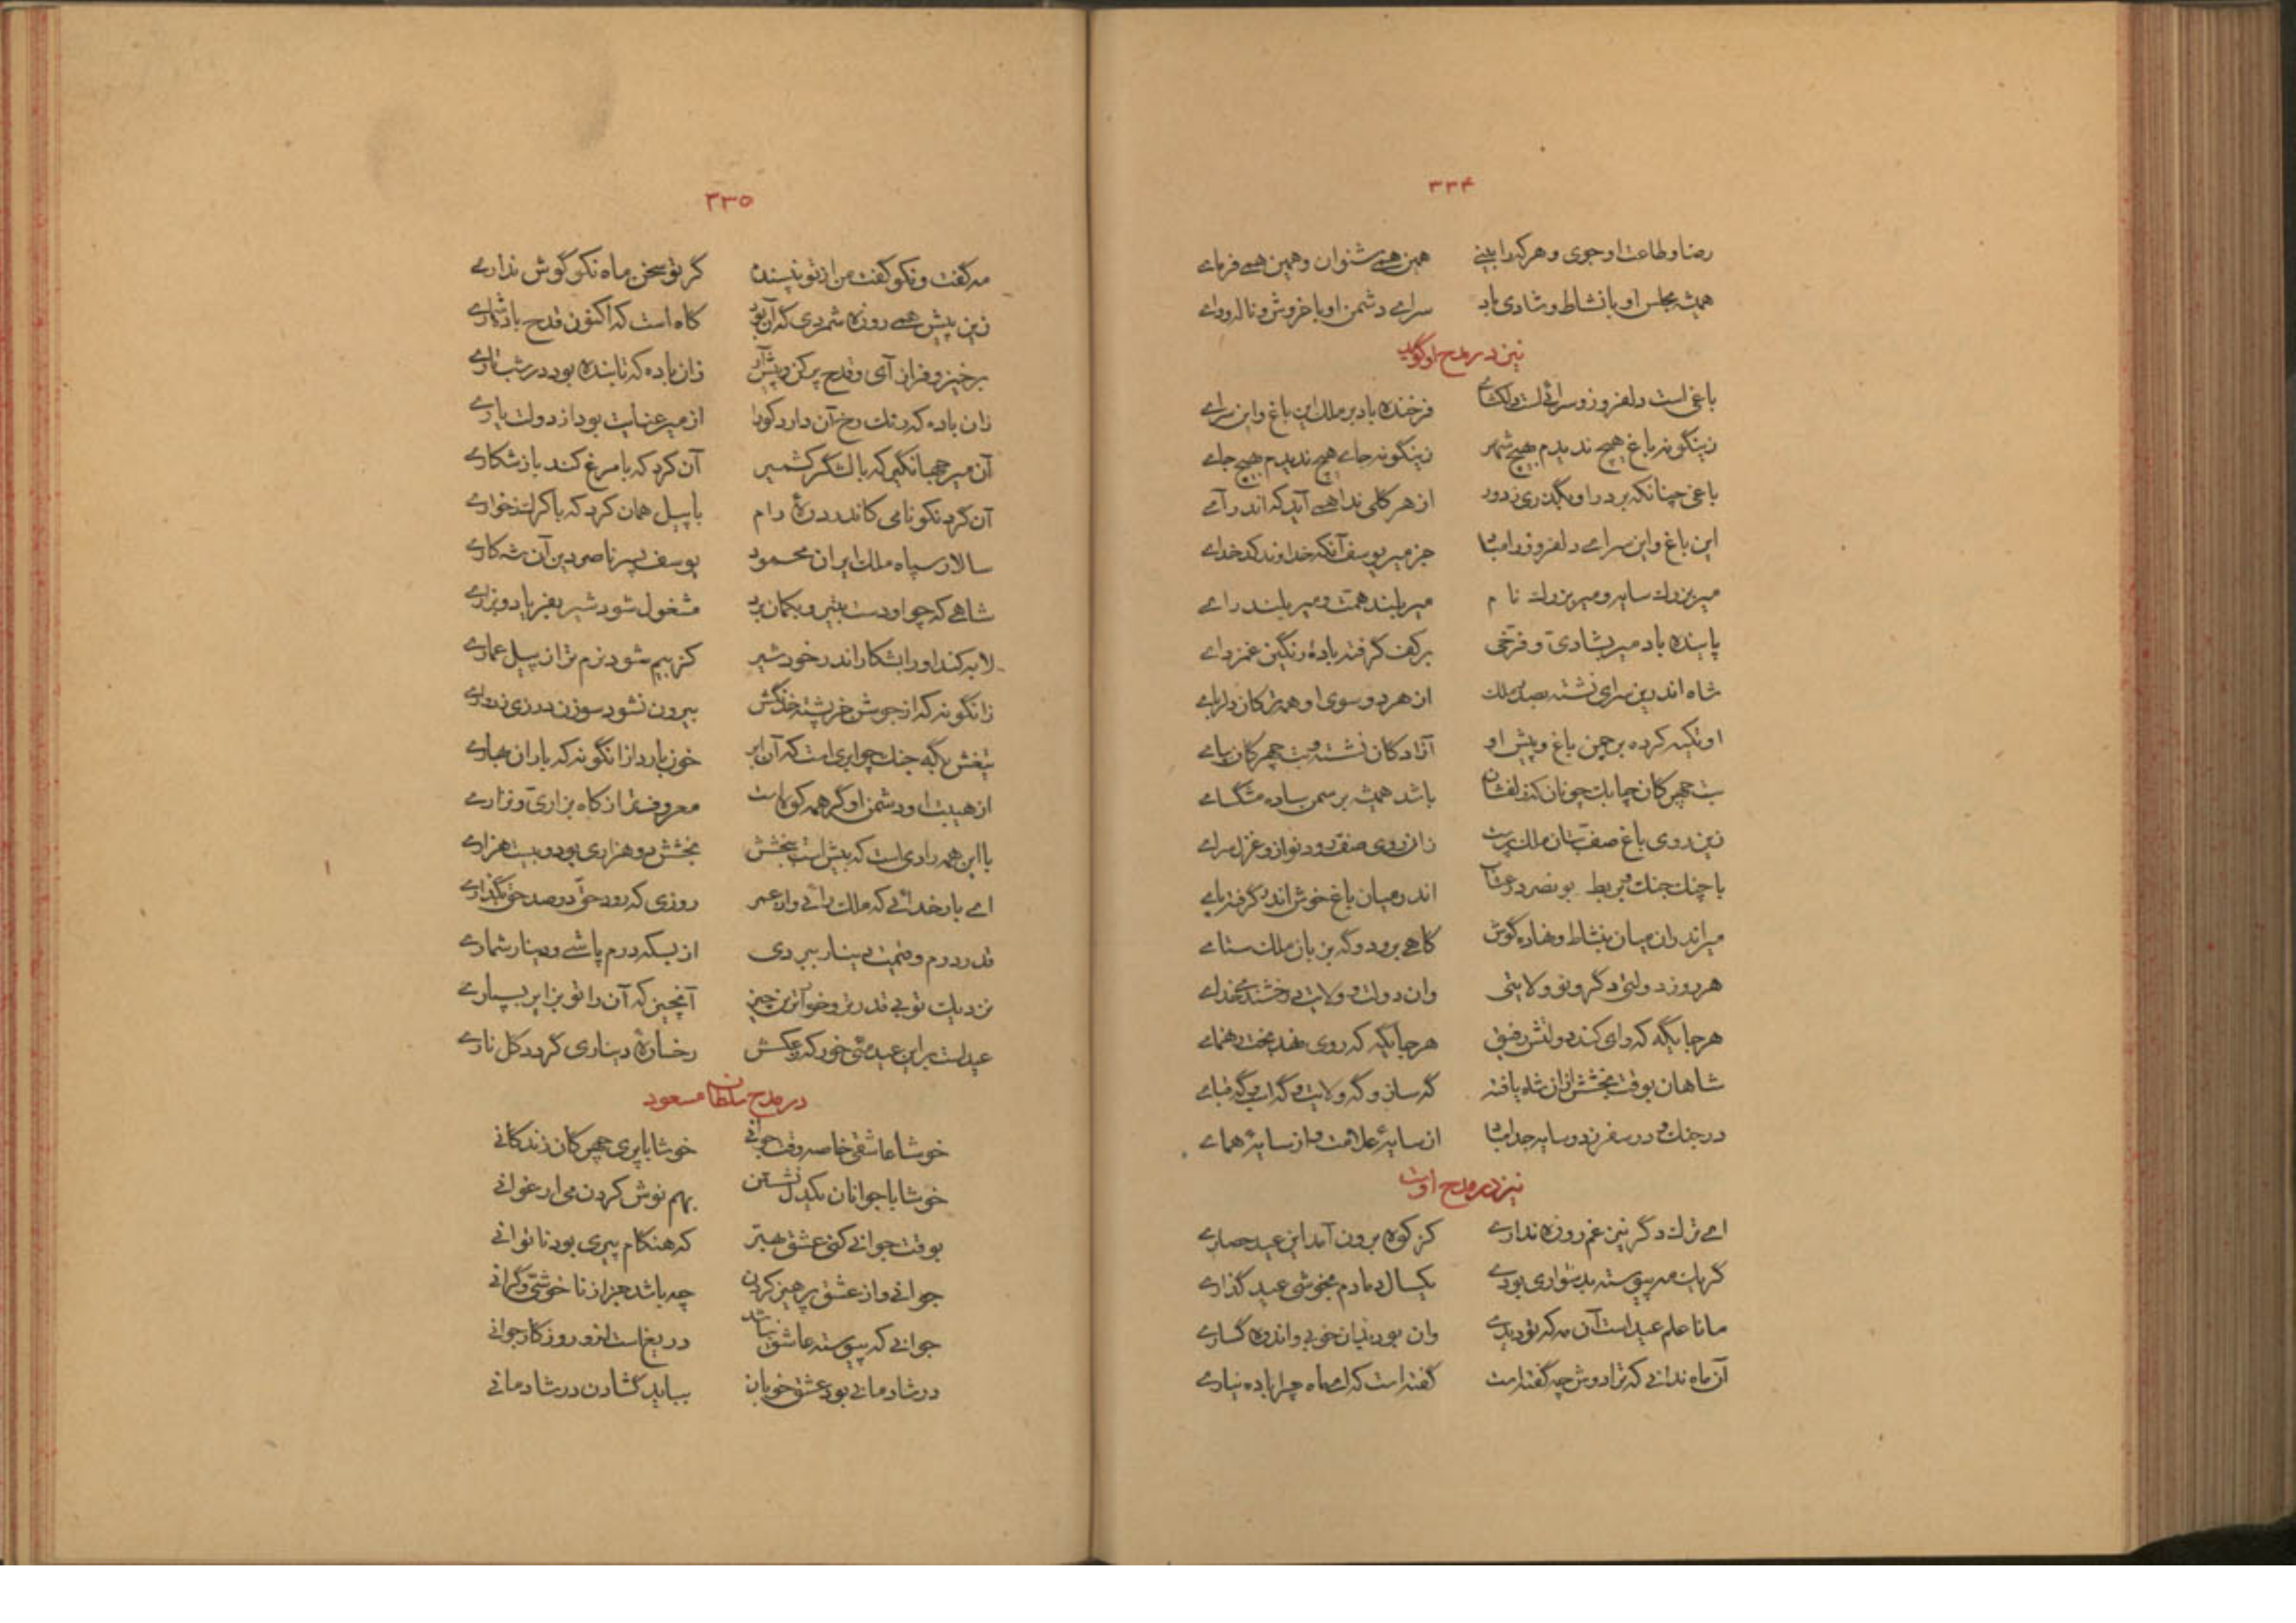 ۳۳۴
رضا و طاعت او جوی و هر کرا بینی همین همی شنوان و همین همی فرمای
همیشه مجلس او با نشاط و شادی باد سرای دشمن او با خروش و ناله و وای
نیز در مدح او گوید
باغی است دلفروز و سرائی است دلگشای فرخنده باد بر ملک این باغ و این سرای
زینگونه باغ هیچ ندیدم بهیچ شهر زینگونه جای هیچ ندیدم بهیچ جای
باغی چنانکه بر در او بگذری ز دور از هر گلی ندا همی آید که اندر آی
این باغ و این سرای دلفروز را مباد جز میر یوسف آنکه خداوند کدخدای
میر بزرگ سایه و میر بزرگ نام میر بلند همت و میر بلند رای
پاینده باد میر بشادی و فرخی بر کف گرفته بادهٔ رنگین غمزدای
شاه اندرین سرای نشسته بصدر ملک از هر دو سوی او همه ترکان دلربای
او تکیه کرده بر چمن باغ و پیش او آزادگان نشسته و بت چهرگان بپای
بت چهرگان چابک چونان که زلفشان باشد همیشه بر سمن ساده مشگسای
زین روی باغ صف بتان ملک پرست زان روی صف رود نواز و غزل سرای
با چنگ چنگ و بربط بونصر در عتاب اندر میان باغ خوش اندر گرفته نای
میر اندران میان بنشاط و نهاده گوش گاهی برود و گه بزبان ملک ستای
هر روز دولتی دگر و نو ولایتی وان دولت و ولایت بخشنده خدای
هر جایگه که رای کند دولتش رفیق هر جایگه که روی نهد بخت رهنمای
شاهان بوقت بخشش از آن شاه یافته گه ساز و گه ولایت و گه اسب و گه قبای
در جنگ و در سفر ز دو سایه جدا مباد از سایهٔ علامت و از سایهٔ همای
نیز در مدح اوست
ای ترک دگر نیز غم روزه نداری کز کوه برون آمد این عید حصاری
گر یک مه پیوسته بدشواری بودی یکسال دمادم بخوشی عید گذاری
مانا علم عید است آن مه که تو دیدی وان بود بدیان خوبی و اندوه گساری
آن ماه ندانی که ترا دوش چه گفته است گفته است که ای ماه چرا باده نیاری
۳۳۵
مه گفت و نکو گفت من از تو نپسندم گر تو سخن ماه نکو گوش نداری
زین پیش همی روزه شمردی که آن بود گاه است که اکنون قدح باده شماری
برخیز و فراز آی و قدح پر کن و پیش آر زان باده که تابنده بود در شب تاری
زان باده که رنگ رخ آن دارد کورا از میر عنایت بود از دولت یاری
آن میر جهانگیر که با لشگر کشمیر آن کرد که با مرغ کند باز شکاری
آن گرد نکو نامی کاندر درهٔ رام با پیل همان کرد که با کرگ ز خواری
سالار سپاه ملک ایران محمود یوسف پسر ناصر دین آن شه کاری
شاهی که چو او دست بتیر و بکمان برد مشغول شود شیر بفریاد و بزاری
لابه کند او را بشکار اندر خود شیر کز بیم شود نرم تر از پیل عماری
زانگونه که از جوشن خرپشته خدنگش بیرون نشود سوزن درزی ز دواری
تیغش بگه جنگ چو ابری است که آن ابر خون بارد ازانگونه که باران بهاری
از هیبت او دشمن او گر همه کوه است معروفتر از کاه بزاری و نزاری
با این همه رادی است که بیش است ببخشش بخشش دو هزاری بود و بیست هزاری
ای بار خدائی که ملک رائی و راد عمر روزی که رود حق دو صد حق بگذاری
قدر درم و قیمت دینار ببردی از بسکه درم پاشی و دینار شماری
نزدیک تو بی قدرتر و خوارترین چیز آنچیز که آن را تو بزایر بسپاری
عید است بر این عید می خور که ز عکسش رخسارهٔ دیناری گردد گل ناری
در مدح سلطان مسعود
خوشا عاشقی خاصه وقت جوانی خوشا با پری چهرگان زندگانی
خوشا با جوانان یکدل نشستن بهم نوش کردن می ارغوانی
بوقت جوانی کنی عشق بهتر که هنگام پیری بود ناتوانی
جوانی و از عشق پرهیز کردن چه باشد جز از ناخوشی و گرانی
جوانی که پیوسته عاشق نباشد دریغ است ازو روزگار جوانی
در شادمانی بود عشق خوبان بباید گشادن در شادمانی